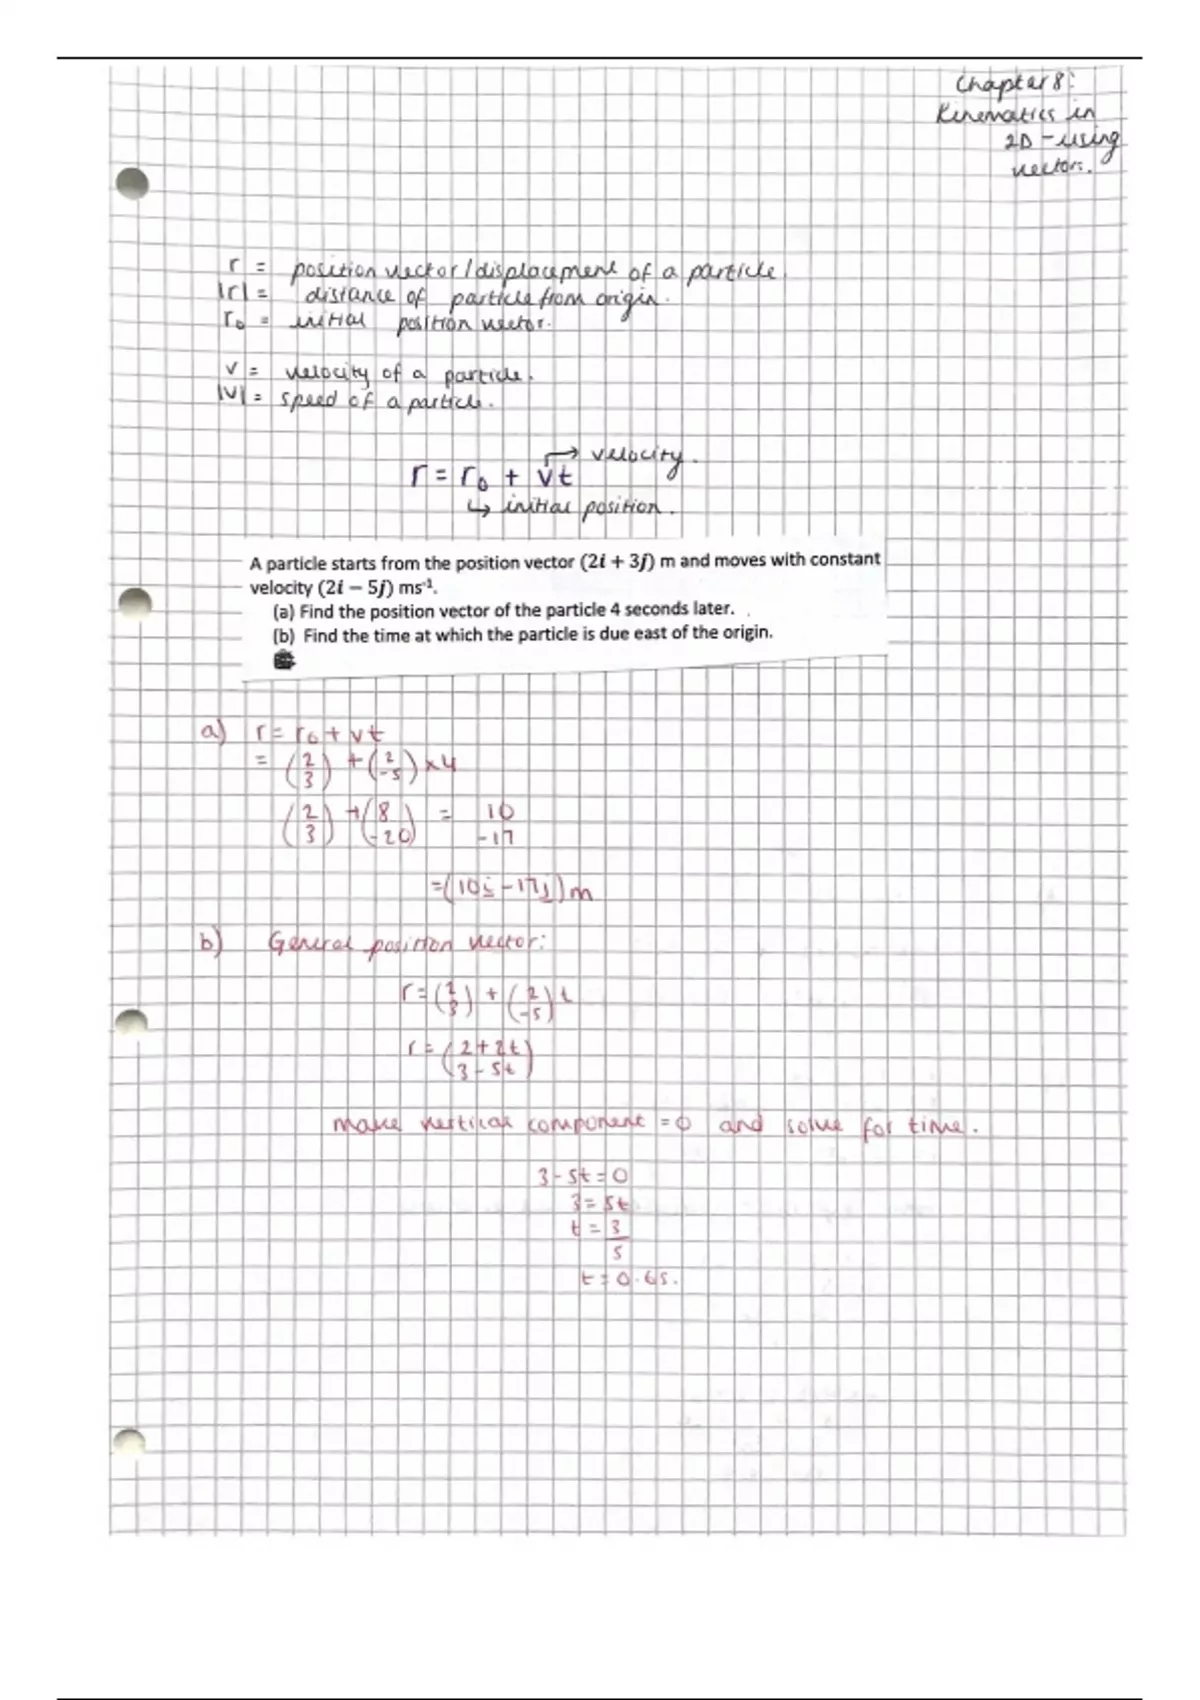 Chapter 8:
Kinematics in
2D - using
vectors.
r = position vector/displacement of a particle.
|r| = distance of particle from origin.
r₀ = initial position vector.
v = velocity of a particle.
|v| = speed of a particle.
→ velocity.
r = r₀ + vt
↳ initial position.
A particle starts from the position vector (2i + 3j) m and moves with constant
velocity (2i − 5j) ms⁻¹.
(a) Find the position vector of the particle 4 seconds later.
(b) Find the time at which the particle is due east of the origin.
a) r = r₀ + vt
= (2 3) + (2 -5) × 4
(2 3) + (8 -20) = 10 -17
= (10i - 17j) m
b) General position vector:
r = (2 3) + (2 -5) t
r = (2+2t 3-5t)
make vertical component = 0 and solve for time.
3 - 5t = 0
3 = 5t
t = 3
5
t = 0.6s.